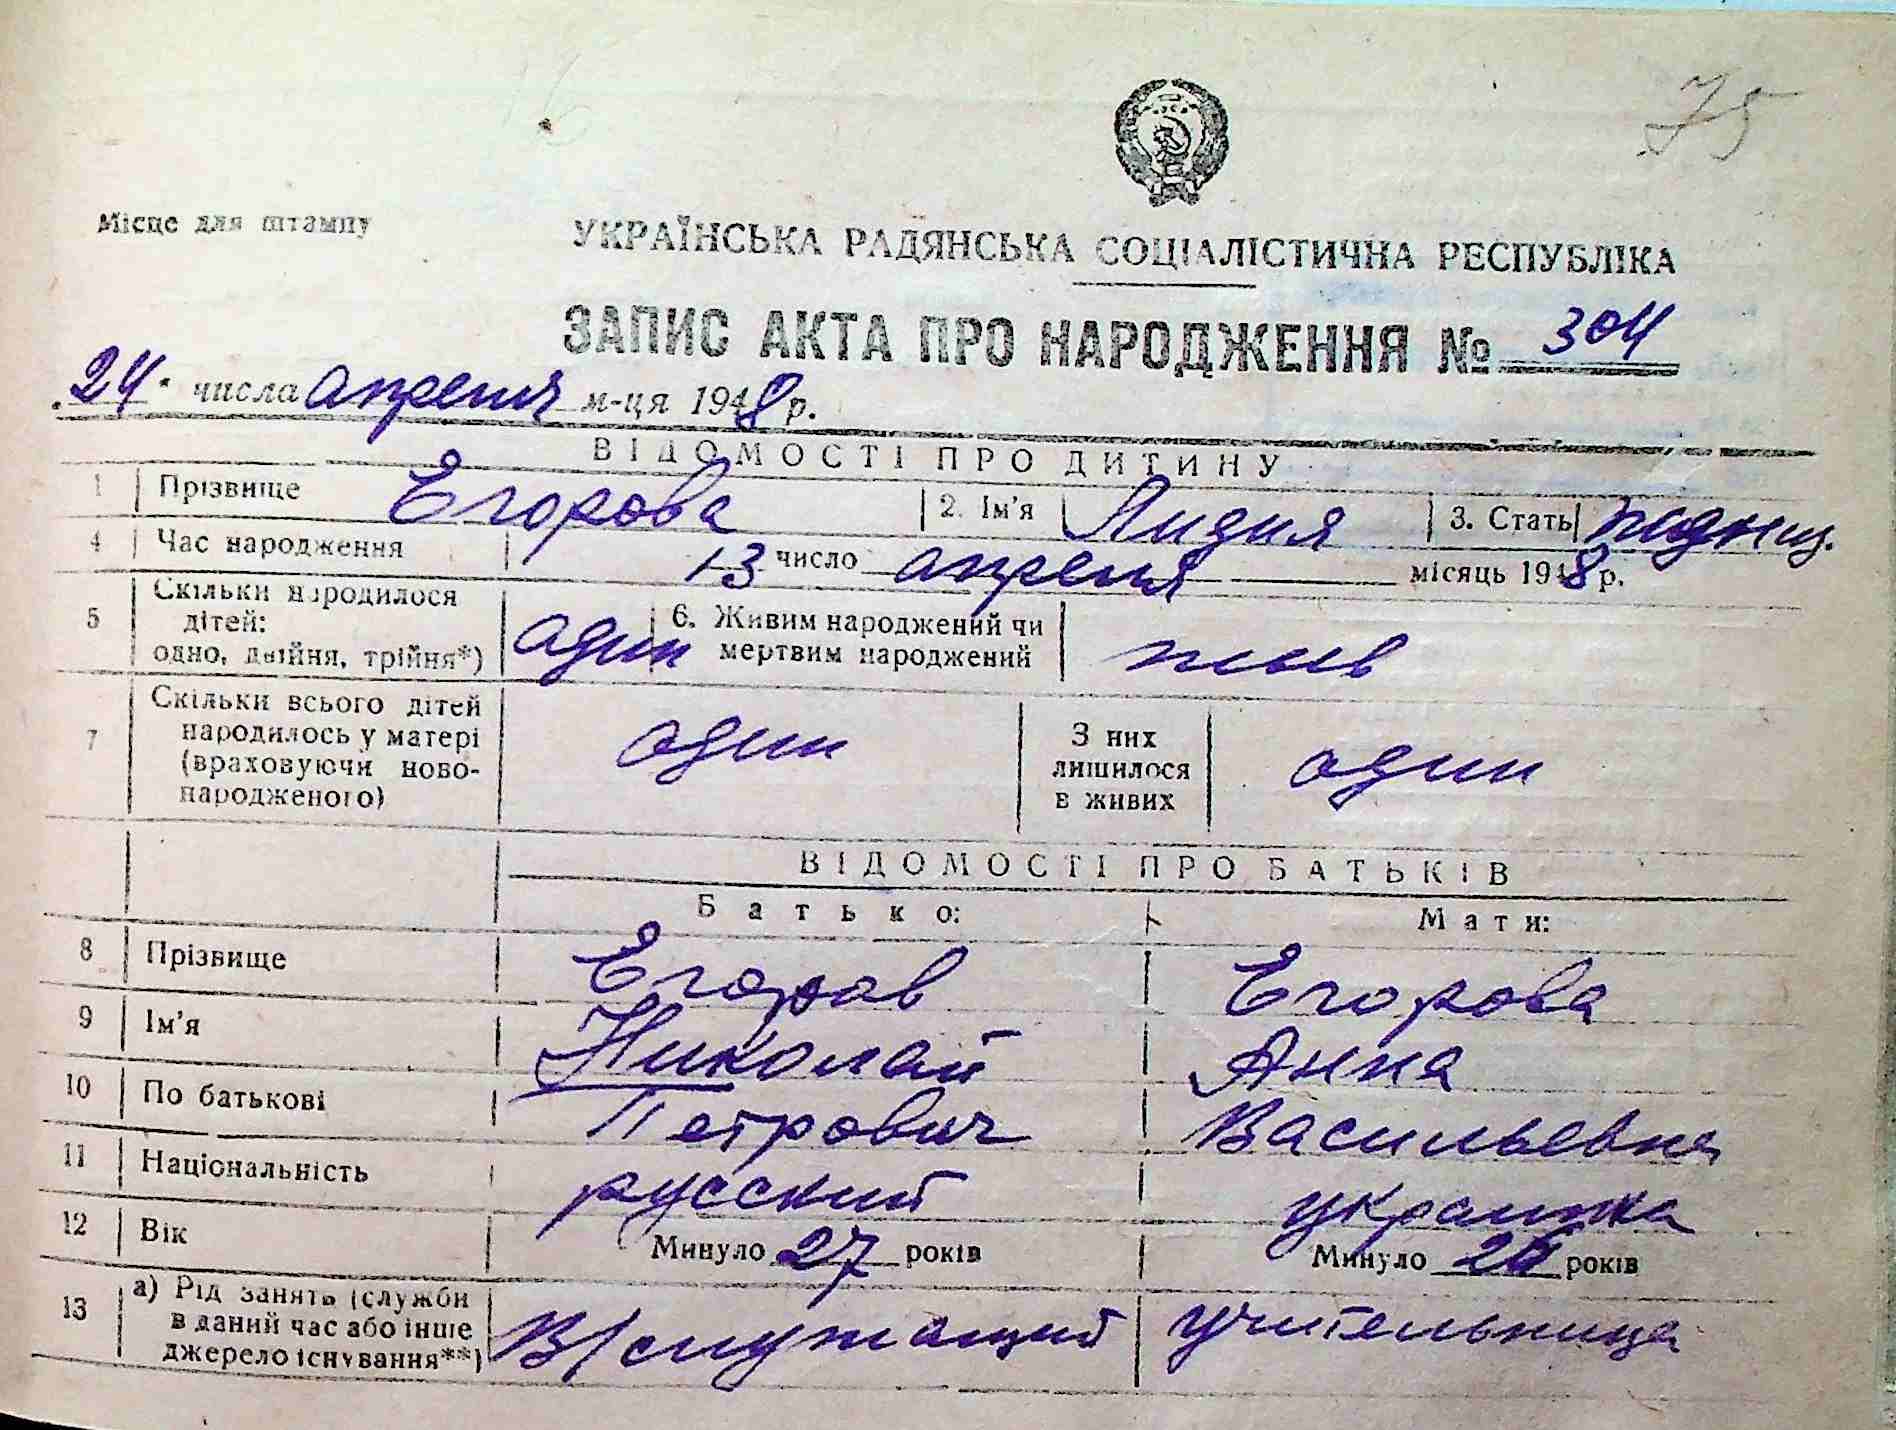 75
Місце для штампу
УКРАЇНСЬКА РАДЯНСЬКА СОЦІАЛІСТИЧНА РЕСПУБЛІКА
ЗАПИС АКТА ПРО НАРОДЖЕННЯ № 304
24 числа апреля м-ця 1948 р.
ВІДОМОСТІ ПРО ДИТИНУ
1 Прізвище Егорова 2. Ім'я Лидия 3. Стать
4 Час народження 13 число апреля місяць 1948 р.
5 Скільки народилося дітей: одно, двійня, трійня*) один 6. Живим народжений чи мертвим народжений жив
7 Скільки всього дітей народилось у матері (враховуючи ново-народженого) один З них лишилося в живих один
ВІДОМОСТІ ПРО БАТЬКІВ
Батько: Мати:
8 Прізвище Егоров Егорова
9 Ім'я Николай Анна
10 По батькові Петрович Васильевна
11 Національність русский украинка
12 Вік Минуло 27 років Минуло 26 років
13 а) Рід занять (служби в даний час або інше джерело існування**) В/служащий учительница